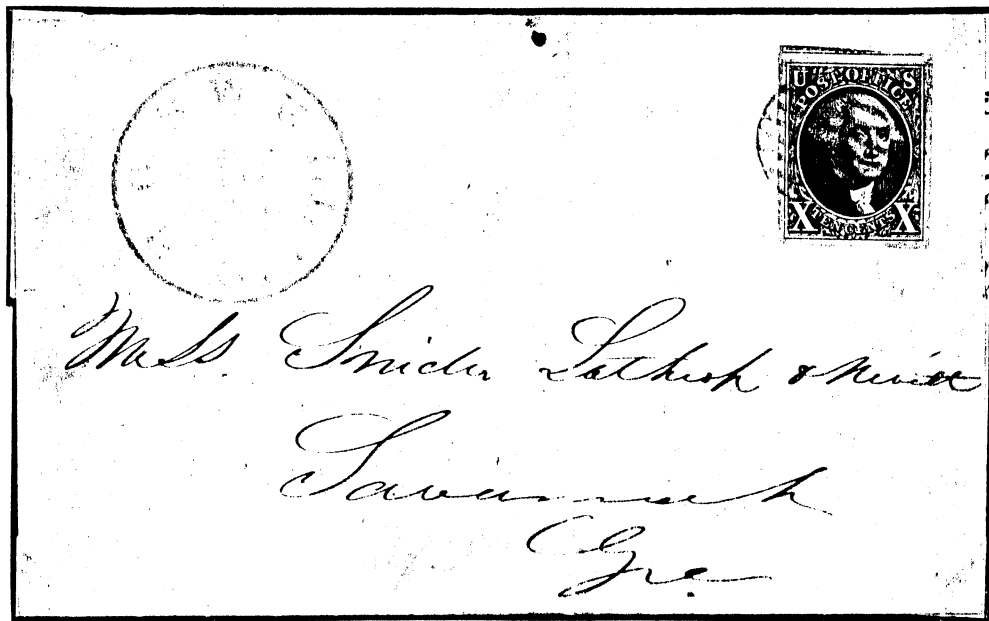 U S
POST OFFICE
X TEN CENTS X
Mess. Snider Lathrop & Nevitt
Savannah
Geo.